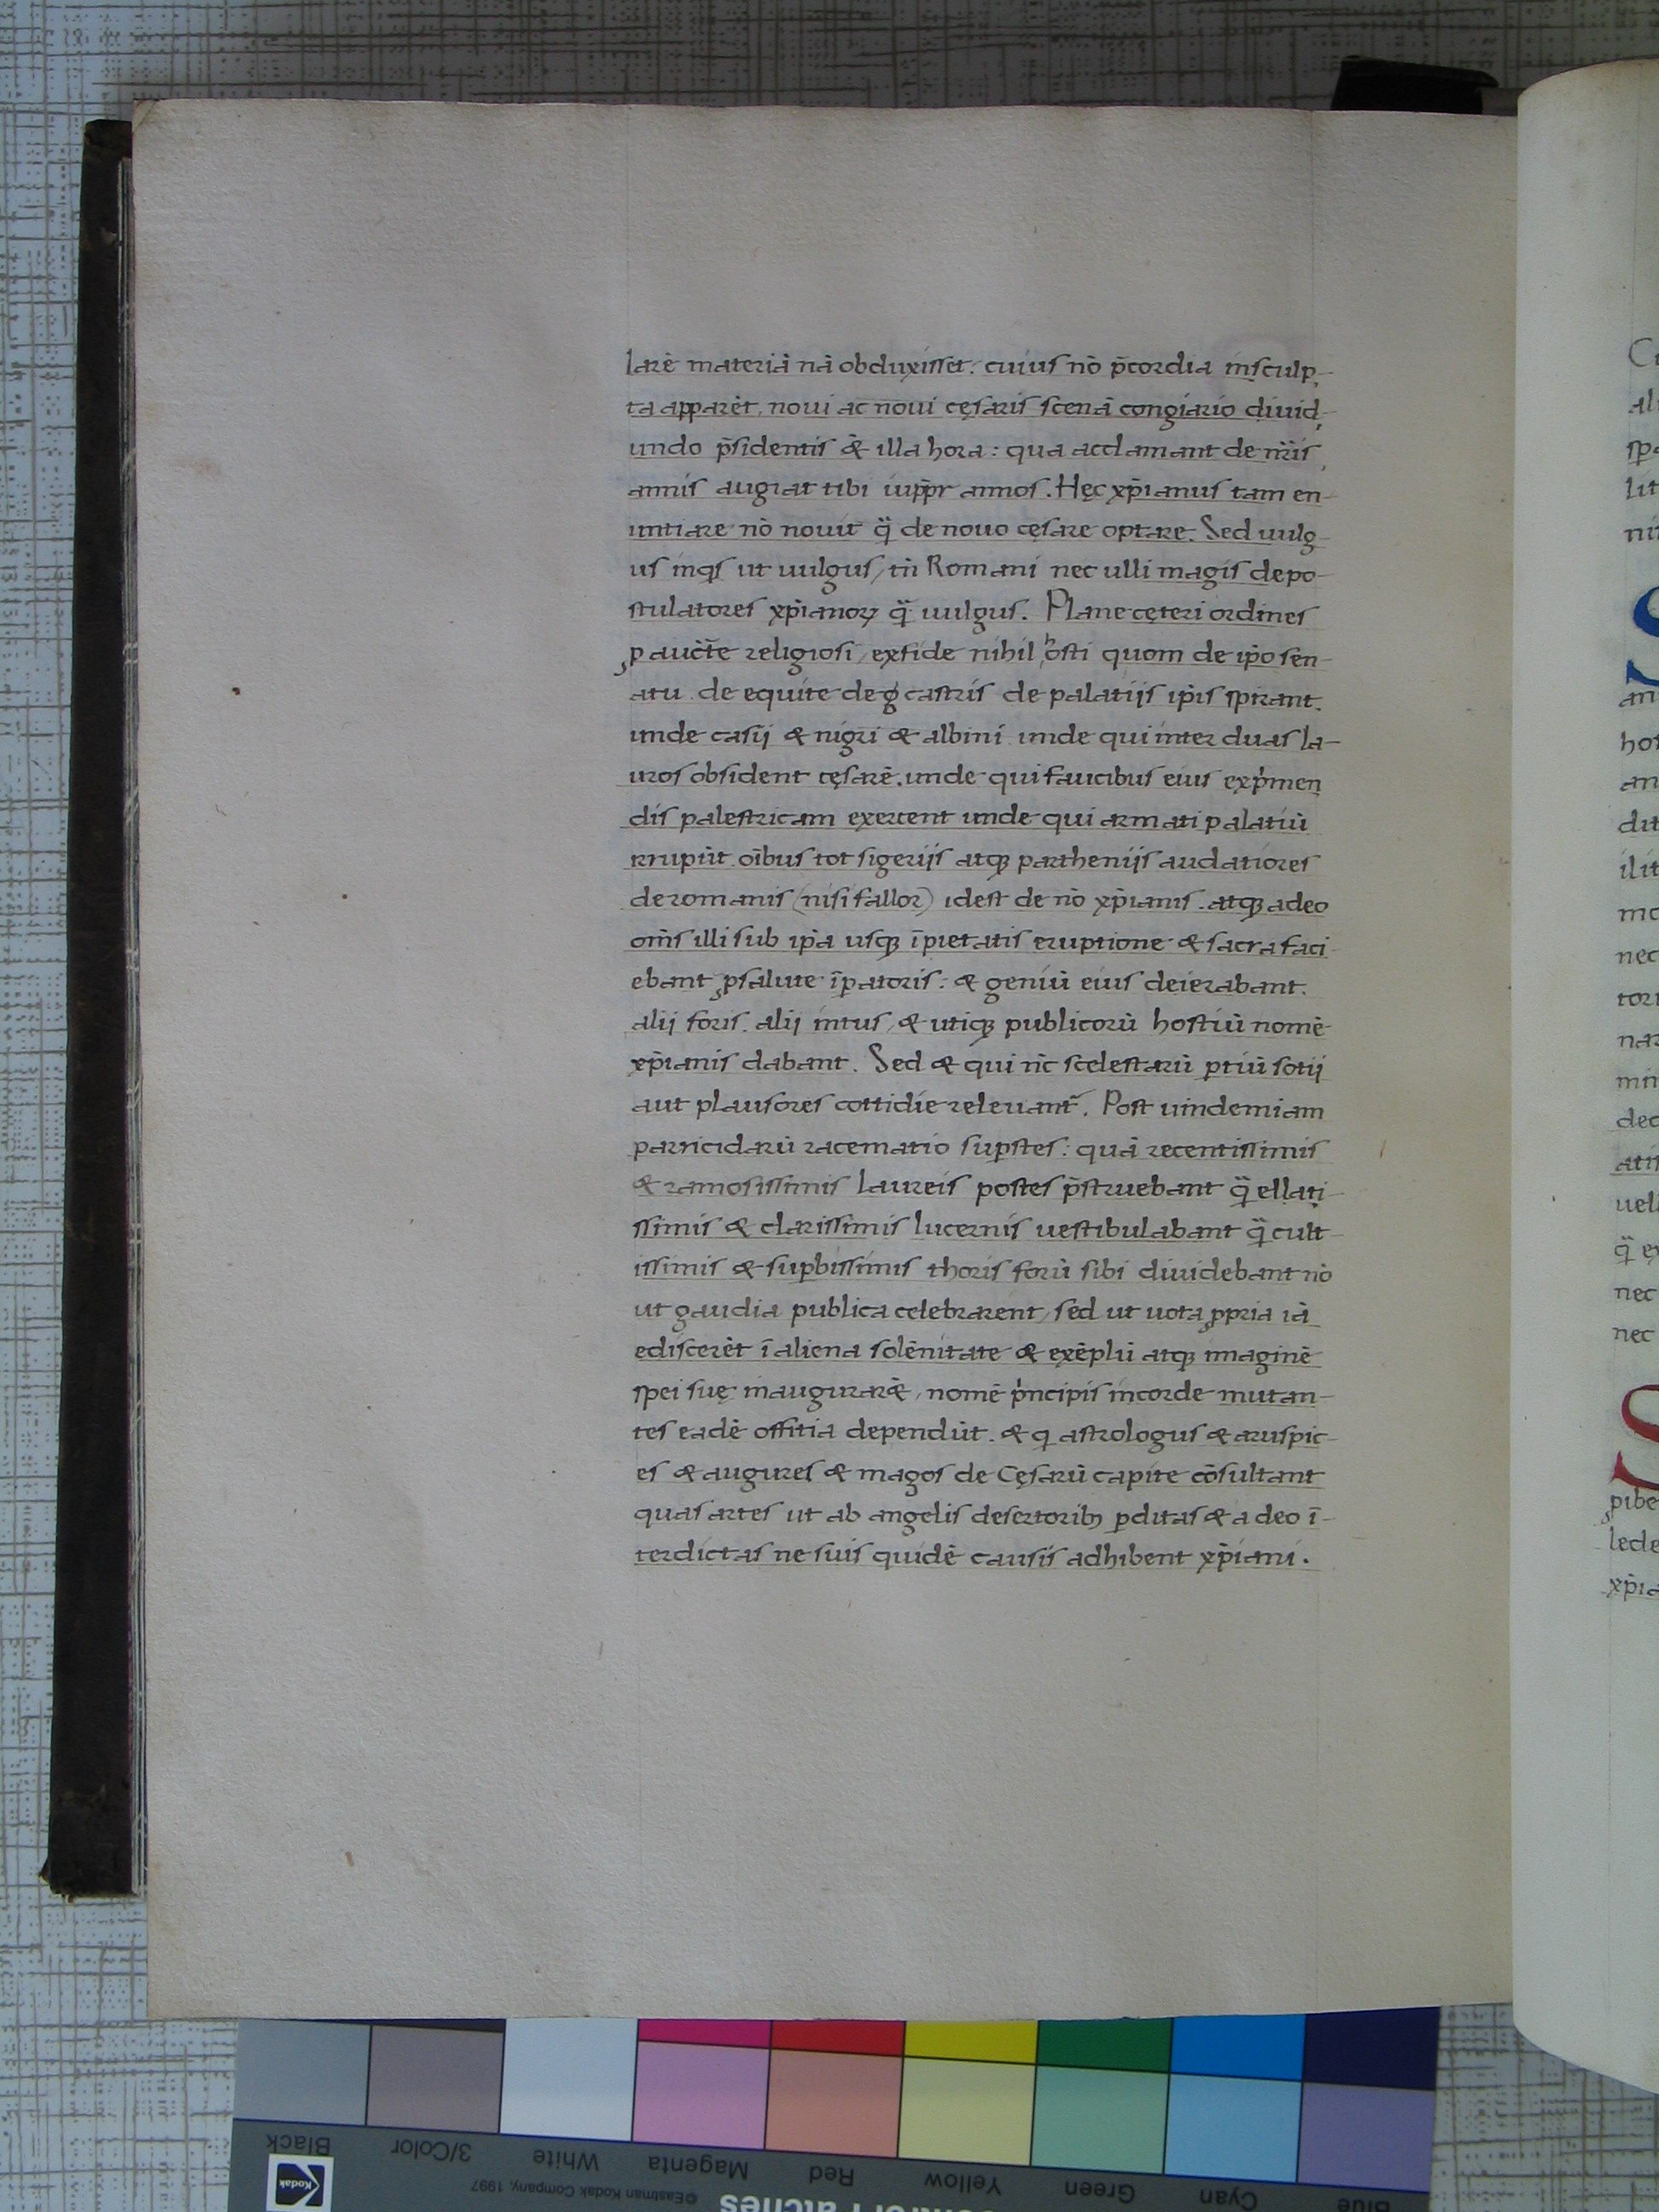 larē materiā nā obduxisset: cuius nō p̄cordia insculp-
ta apparēt, noui ac noui cęsaris scenā congiario diuid-
undo p̄sidentis & illa hora: qua acclamant de nr̄is
annis augeat tibi iupp̄r annos. Hęc xp̄ianus tam en-
untiare nō nouit q̄ de nouo cęsare optare. Sed uulg-
us inqs ut uulgus, tn̄ Romani nec ulli magis depo-
stulatores xp̄ianoꝝ q̄ uulgus. Plane cęteri ordines
ꝓ auctē religiosi, ex fide nihil hosti quom de ip̄o sen-
atu de equite de castris de palatijs ip̄is spirant.
unde casij & nigri & albini unde qui inter duas la-
uros obsident cęsarē. unde qui faucibus eius exp̍men
dis palestricam exercent unde qui armati palatiū
rrupūt oībus tot sigerijs atqꝫ parthenijs audatiores
de romanis (nisi fallor) idest de nō xp̄ianis. atqꝫ adeo
om̄s illi sub ip̄a usqꝫ īpietatis eruptione & sacra faci-
ebant ꝓ salute īꝑatoris: & geniū eius deierabant.
alij foris. alij intus, & utiqꝫ publicorū hostiū nomē
xp̄ianis dabant. Sed & qui nc̄ scelestarū ꝑtiū sotij
aut plausores cottidie releuant̄. Post uindemiam
parricidarū racematio suꝑstes: quā recentissimis
& ramosissimis laureis postes p̄struebant q̄ ellati-
ssimis & clarissimis lucernis uestibulabant q̄ cult-
issimis & suꝑbissimis thoris forū sibi diuidebant nō
ut gaudia publica celebrarent, sed ut uota ꝓpria iā
ediscerēt ī aliena solēnitate & exēplū atqꝫ imaginē
spei suę inaugurar&, nomē p̍ncipis in corde mutan-
tes eadē offitia dependūt. & q astrologus & aruspic-
es & augures & magos de Cęsarū capite cōsultant
quas artes ut ab angelis desertoribꝫ ꝑditas & a deo ī-
terdictas ne suis quidē causis adhibent xp̄iani.
Black
3/Color
White
Magenta
Red
Yellow
Green
Cyan
Blue
Kodak
©Eastman Kodak Company, 1997